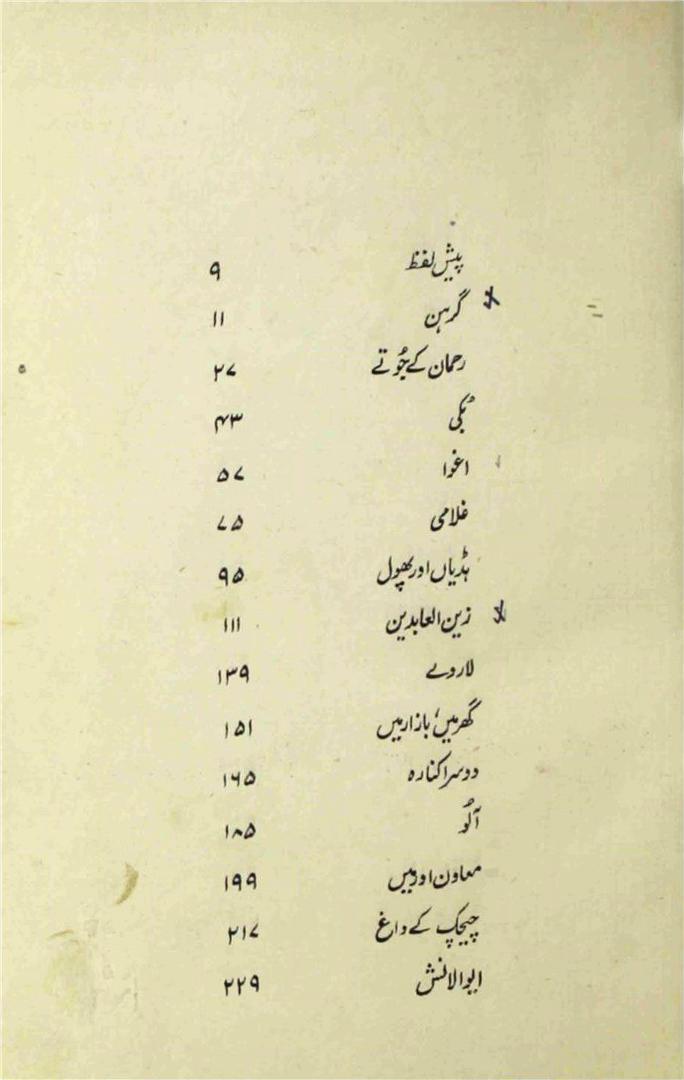 پیش لفظ ۹
گرہن ۱۱
رحمان کے جُوتے ۲۷
بُکی ۴۳
اغوا ۵۷
غلامی ۷۵
ہڈیاں اور پھول ۹۵
زین العابدین ۱۱۱
لاروے ۱۳۹
گھر میں، بازار میں ۱۵۱
دوسرا کنارہ ۱۶۵
آلُو ۱۸۵
معاون اور میں ۱۹۹
چیچک کے داغ ۲۱۷
ایوالانش ۲۲۹